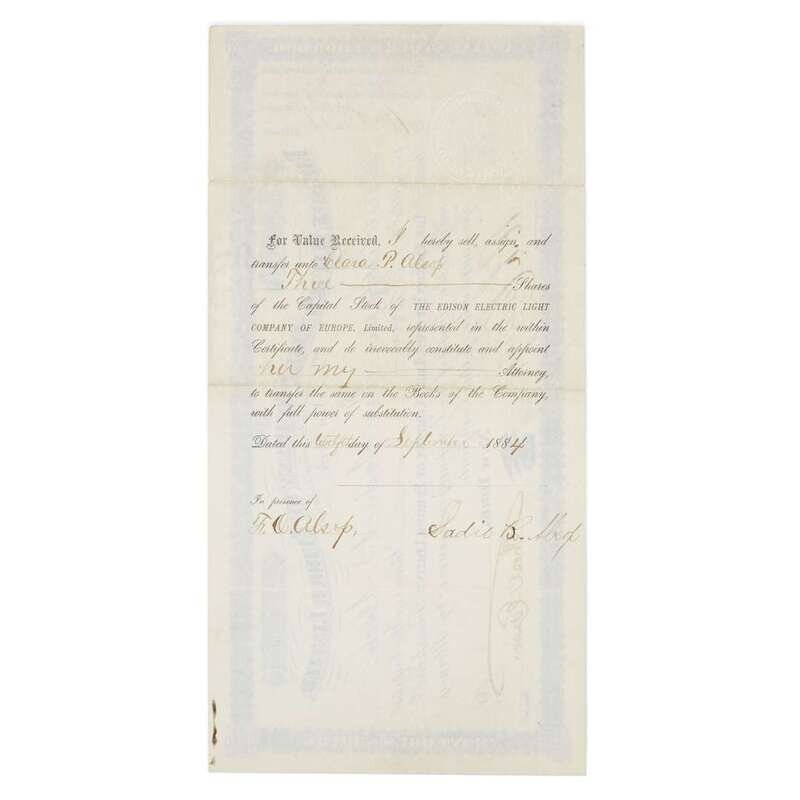 For Value Received, I hereby sell, assign, and
transfer unto Clara P. Alsop
Three Shares
of the Capital Stock of THE EDISON ELECTRIC LIGHT
COMPANY OF EUROPE, Limited, represented in the within
Certificate, and do irrevocably constitute and appoint
her my Attorney,
to transfer the same on the Books of the Company,
with full power of substitution.
Dated this twelfth day of September 1884
In presence of
F. C. Alsop, Sadie B. Alsop